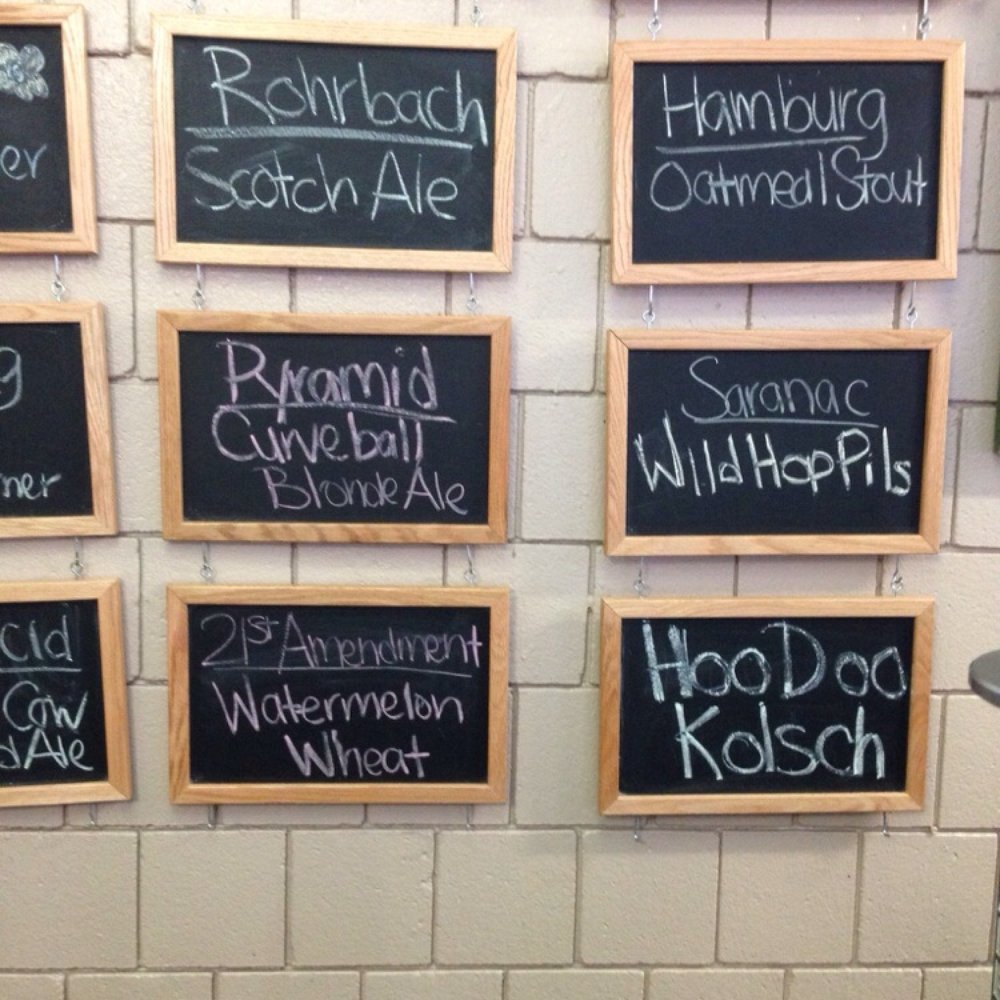 er
Rohrbach
Scotch Ale
Hamburg
Oatmeal Stout
g
ner
Pyramid
Curveball
Blonde Ale
Saranac
Wild Hop Pils
Cld
Cow
d Ale
21st Amendment
Watermelon
Wheat
HooDoo
Kolsch